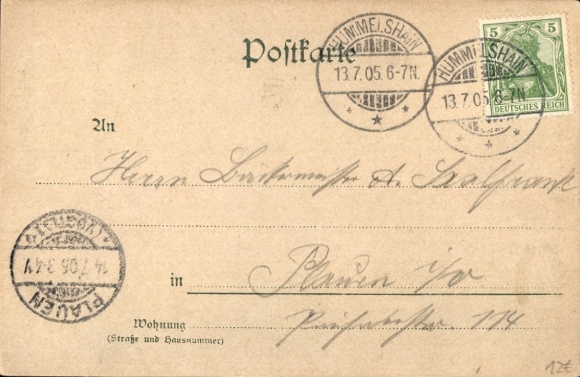 Postkarte
HUMMELSHAIN
13.7.05.6-7N.
HUMMELSHAIN
13.7.05.6-7N.
5 5
DEUTSCHES REICH
An
Herrn Bäckermeister A.
PLAUEN
(VOGTL.)
14.7.05.3-4V
in Plauen i/V
Wohnung
(Straße und Hausnummer)
114